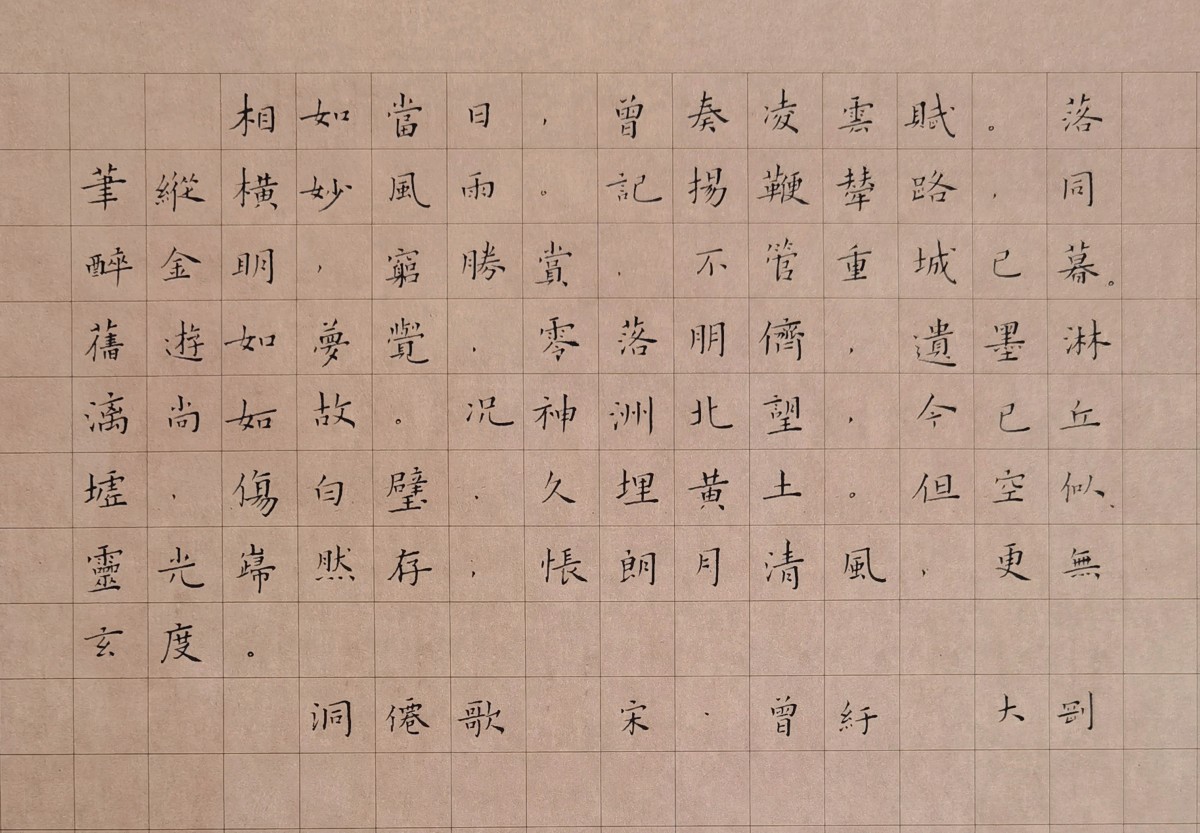 相如當日，曾奏凌雲賦。落
筆縱橫妙風雨。記揚鞭輦路，同
醉金明，窮勝賞，不管重城已暮。
舊遊如夢覺，零落朋儕，遺墨淋
漓尚如故。况神洲北望，今已丘
墟，傷白璧，久埋黃土。但空似、
靈光巋然存，悵朗月清風，更無
玄度。
洞僊歌 宋·曾紆 大剛